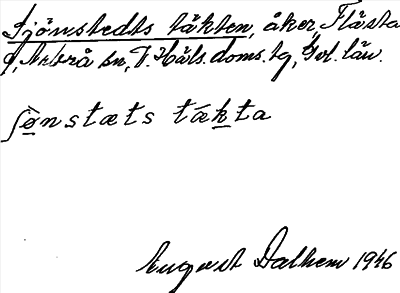 Sjönstedts täkten, åker, Flästa
d, Arbrå sn, V. Häls. doms.tg, Gvl. län.
ʃònstæts tákta
August Dalhem 1946